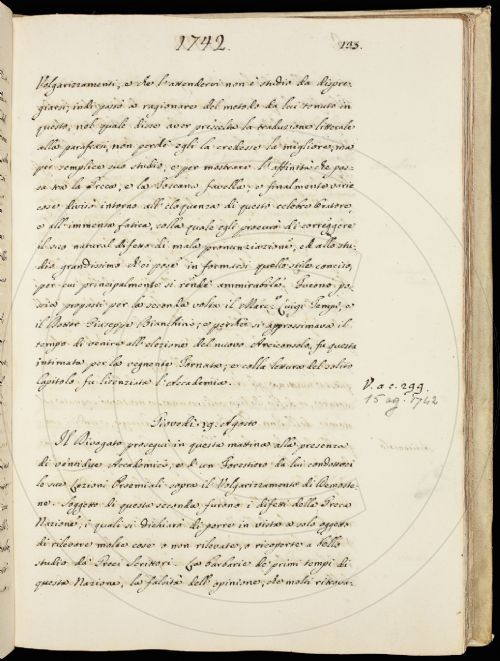 1742.
193.
Volgarizzamenti, e che l'attendervi non è studio da dispre-
giarsi; indi passò a ragionare del metodo da lui tenuto in
questo, nel quale disse aver prescelta la traduzione litterale
alla parafrasi, non perchè egli la credesse la migliore, ma
per semplice suo studio, e per mostrare l'affinità che pas-
sa tra la Greca, e la Toscana favella; e finalmente varie
cose divisò intorno all'eloquenza di questo celebre Oratore,
e all'immensa fatica, colla quale egli procurò di correggere
il suo natural difetto di mala pronunziazione, e allo stu-
dio grandissimo ch'ei pose in formarsi quello stile conciso,
per cui principalmente si rendè ammirabile. Furono po-
scia proposti per la seconda volta il Marc.e Luigi Tempi, e
il Dottor Giuseppe Bianchini; e perchè si approssimava il
tempo di venire all'elezione del nuovo Arciconsolo, fu questa
intimata per la vegnente Tornata, e colla lettura del solito
Capitolo fu licenziata l'Accademia.
V. a c. 299.
15 ag. 1742
Giovedì 19. Agosto
Il Divagato proseguì in questa mattina alla presenza
di ventidue Accademici, e d'un Forestiero da lui condottovi
le sue Lezioni Proemiali sopra il Volgarizzamento di Demoste-
ne. Soggetto di questa seconda furono i difetti della Greca
Nazione, i quali si dichiarò di porre in vista a solo oggetto
di rilevare molte cose o non rilevate, o ricoperte a bello
studio da' Greci Scrittori. La barbarie de' primi tempi di
questa Nazione, la falsità dell'opinione, che molti ritrova-